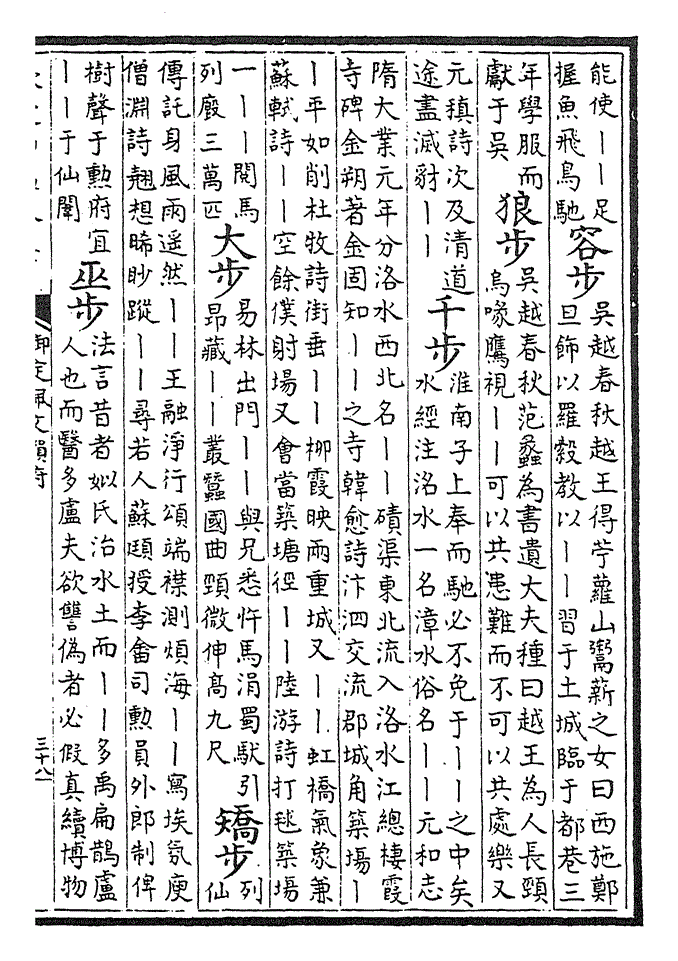 能使｜｜足
握魚飛鳥馳
容步
吳越春秋越王得苧蘿山鬻薪之女曰西施鄭
旦飾以羅縠教以｜｜習于土城臨于都巷三
年學服而
獻于吳
狼步
吳越春秋范蠡為書遺大夫種曰越王為人長頸
烏喙鷹視｜｜可以共患難而不可以共處樂又
元稹詩次及清道
途盡滅豺｜｜
千步
淮南子上奉而馳必不免于｜｜之中矣
水經注洺水一名漳水俗名｜｜元和志
隋大業元年分洛水西北名｜｜磧渠東北流入洛水江總棲霞
寺碑金朔著金固知｜｜之寺韓愈詩汴泗交流郡城角築塲｜
｜平如削杜牧詩街垂｜｜柳霞映兩重城又｜｜虹橋氣象兼
蘇軾詩｜｜空餘僕射塲又會當築塘徑｜｜陸游詩打毬築塲
一｜｜閱馬
列廏三萬匹
大步
易林出門｜｜與兄悉忤馬涓蜀馱引
昂藏｜｜叢蠶國曲頸微伸高九尺
矯步
列
仙
傳託身風雨遥然｜｜王融淨行頌端襟測煩海｜｜寫埃氛庾
僧淵詩翹想晞眇蹤｜｜尋若人蘇頲授李畬司勲員外郎制俾
樹聲于勲府宜
｜｜于仙闈
巫步
法言昔者姒氏治水土而｜｜多禹扁鵲盧
人也而醫多盧夫欲讐偽者必假真續博物
御定佩文韻府
三十八